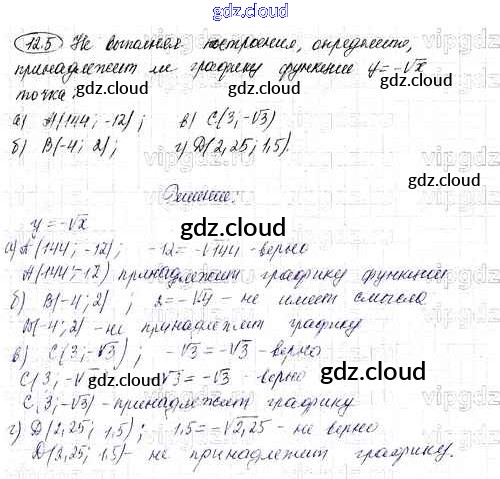 gdz.cloud
12.5 Не выполняя построения, определите,
принадлежит ли графику функции y=-√x
точка:
а) A(144; -12); в) C(3; -√3)
б) B(-4; 2); г) D(2,25; 1,5).
gdz.cloud
Решение:
y=-√x
gdz.cloud
а) A(144; -12); -12=-√144 - верно
A(144; -12) принадлежит графику функции
б) B(-4; 2); 2=-√4 - не имеет смысла
B(-4; 2) - не принадлежит графику
в) C(3; -√3); -√3=-√3 - верно
C(3; -√3) √3=-√3 - верно
gdz.cloud
C(3; -√3) - принадлежит графику
г) D(2,25; 1,5); 1,5=-√2,25 - не верно
D(2,25; 1,5) - не принадлежит графику.
gdz.cloud